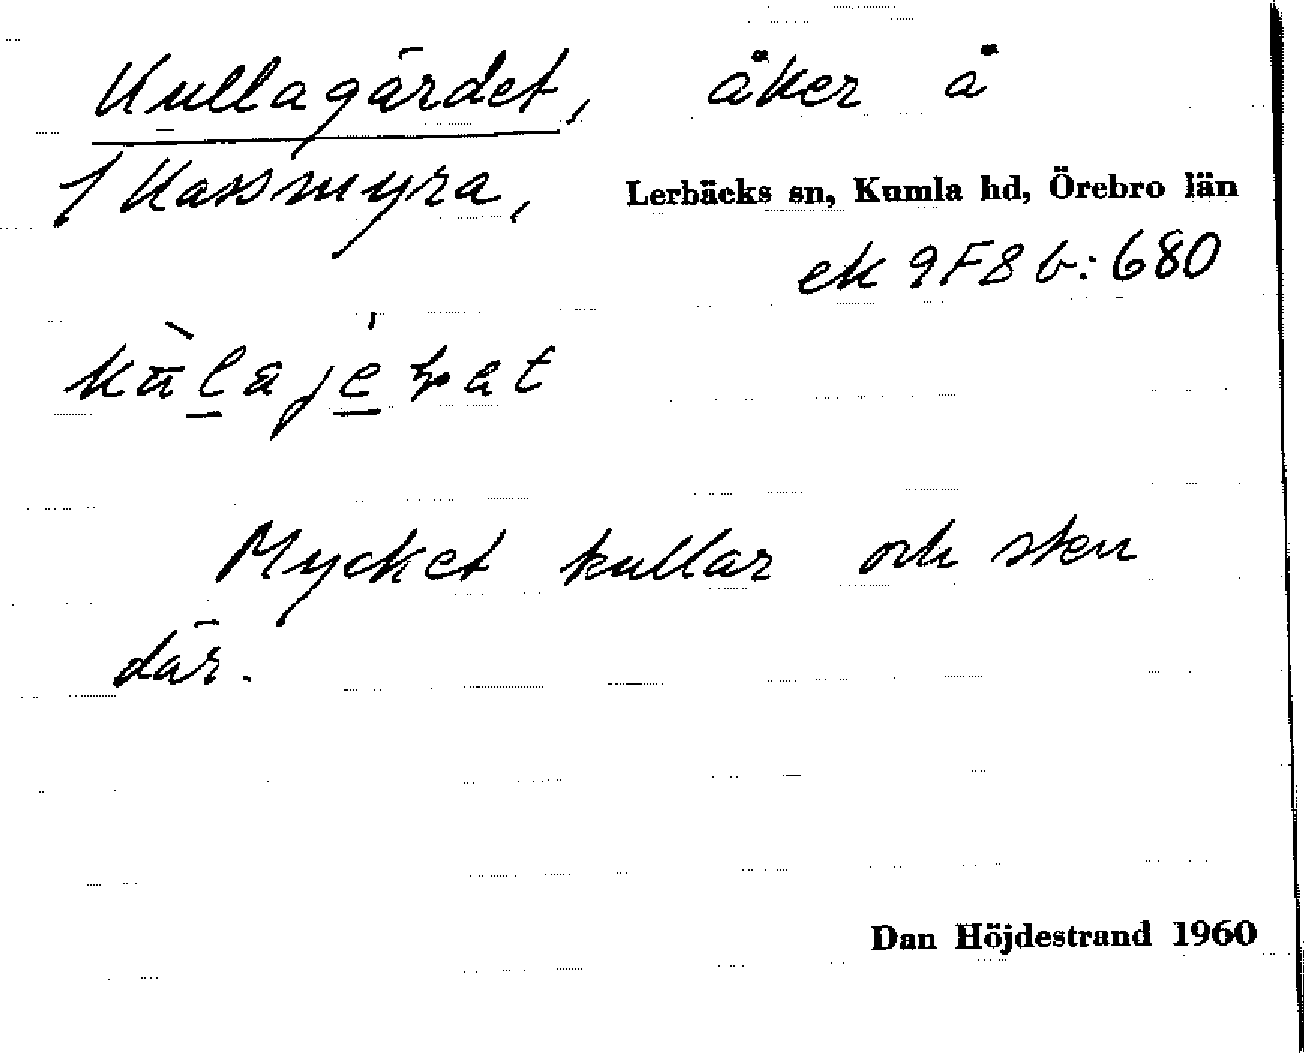 Kullagärdet, åker å
1 Kassmyra, Lerbäcks sn, Kumla hd, Örebro län
ek 9F8b:680
Mycket kullar och sten
där.
Dan Höjdestrand 1960